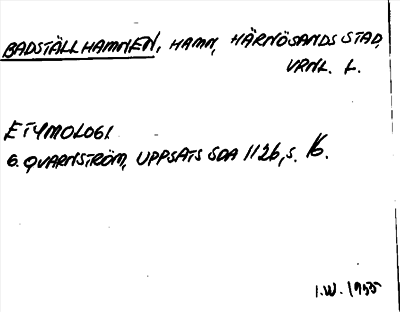 BADSTÄLLHAMNEN, HAMN, HÄRNÖSANDS STAD,
VRNL. L.
ETYMOLOGI
G. QVARNSTRÖM, UPPSATS SOA 1126, S. 16.
I.W. 1955